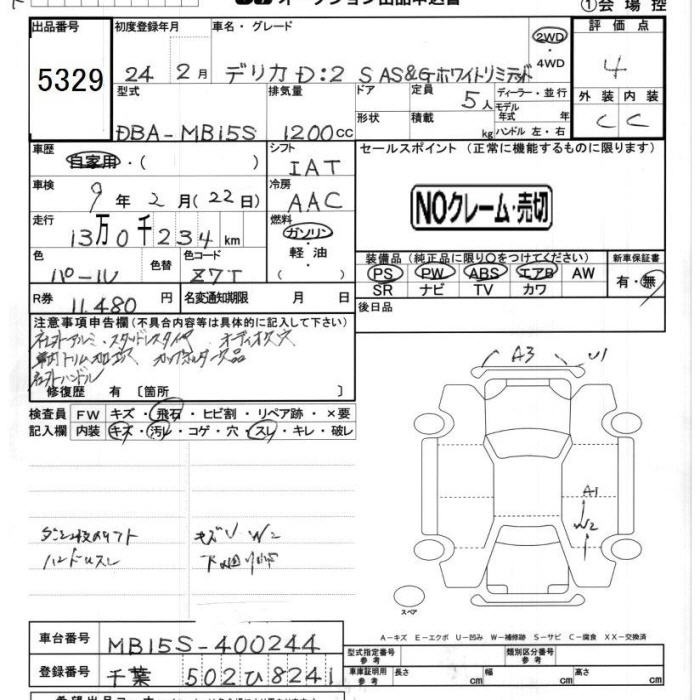 オークション出品申込書
①会場控
出品番号 初度登録年月 車名・グレード 評価点
5329 24 2月 デリカD:2 S AS&Gホワイトリミテッド 2WD ・4WD 4
型式 排気量 ドア 定員 5人 ディーラー・並行 外装 内装
モデル年式 年
DBA-MB15S 1200cc 形状 積載 kg ハンドル 左・右 C C
車歴 自家用・( ) シフト IAT セールスポイント (正常に機能するものに限ります)
車検 9年2月(22日) 冷房 AAC
NOクレーム・売切
走行 13万0千234km 燃料 ガソリン・軽油・( )
色 パール 色替 色コード Z7T 装備品 (純正品に限り○をつけてください) 新車保証書
PS PW ABS エアB AW 有・無
SR ナビ TV カワ
R券 11,480円 名変通知期限 月 日 後日品
注意事項申告欄(不具合内容等は具体的に記入して下さい)
社外アルミ・スタッドレスタイヤ オーディオ欠
社外ハンドル
修復歴 有 〔箇所 〕
A3 U1
検査員 FW キズ・飛石・ヒビ割・リペア跡・×要
記入欄 内装 キズ・汚レ・コゲ・穴・スレ・キレ・破レ
A1
W2
キズU W2
ハンドルスレ
スペア
A-キズ E-エクボ U-凹み W-補修跡 S-サビ C-腐食 XX-交換済
車台番号 MB15S-400244 型式指定番号 参考 類別区分番号 参考
登録番号 千葉 502ひ8241 車庫証明用 参考 長さ cm 幅 cm 高さ cm